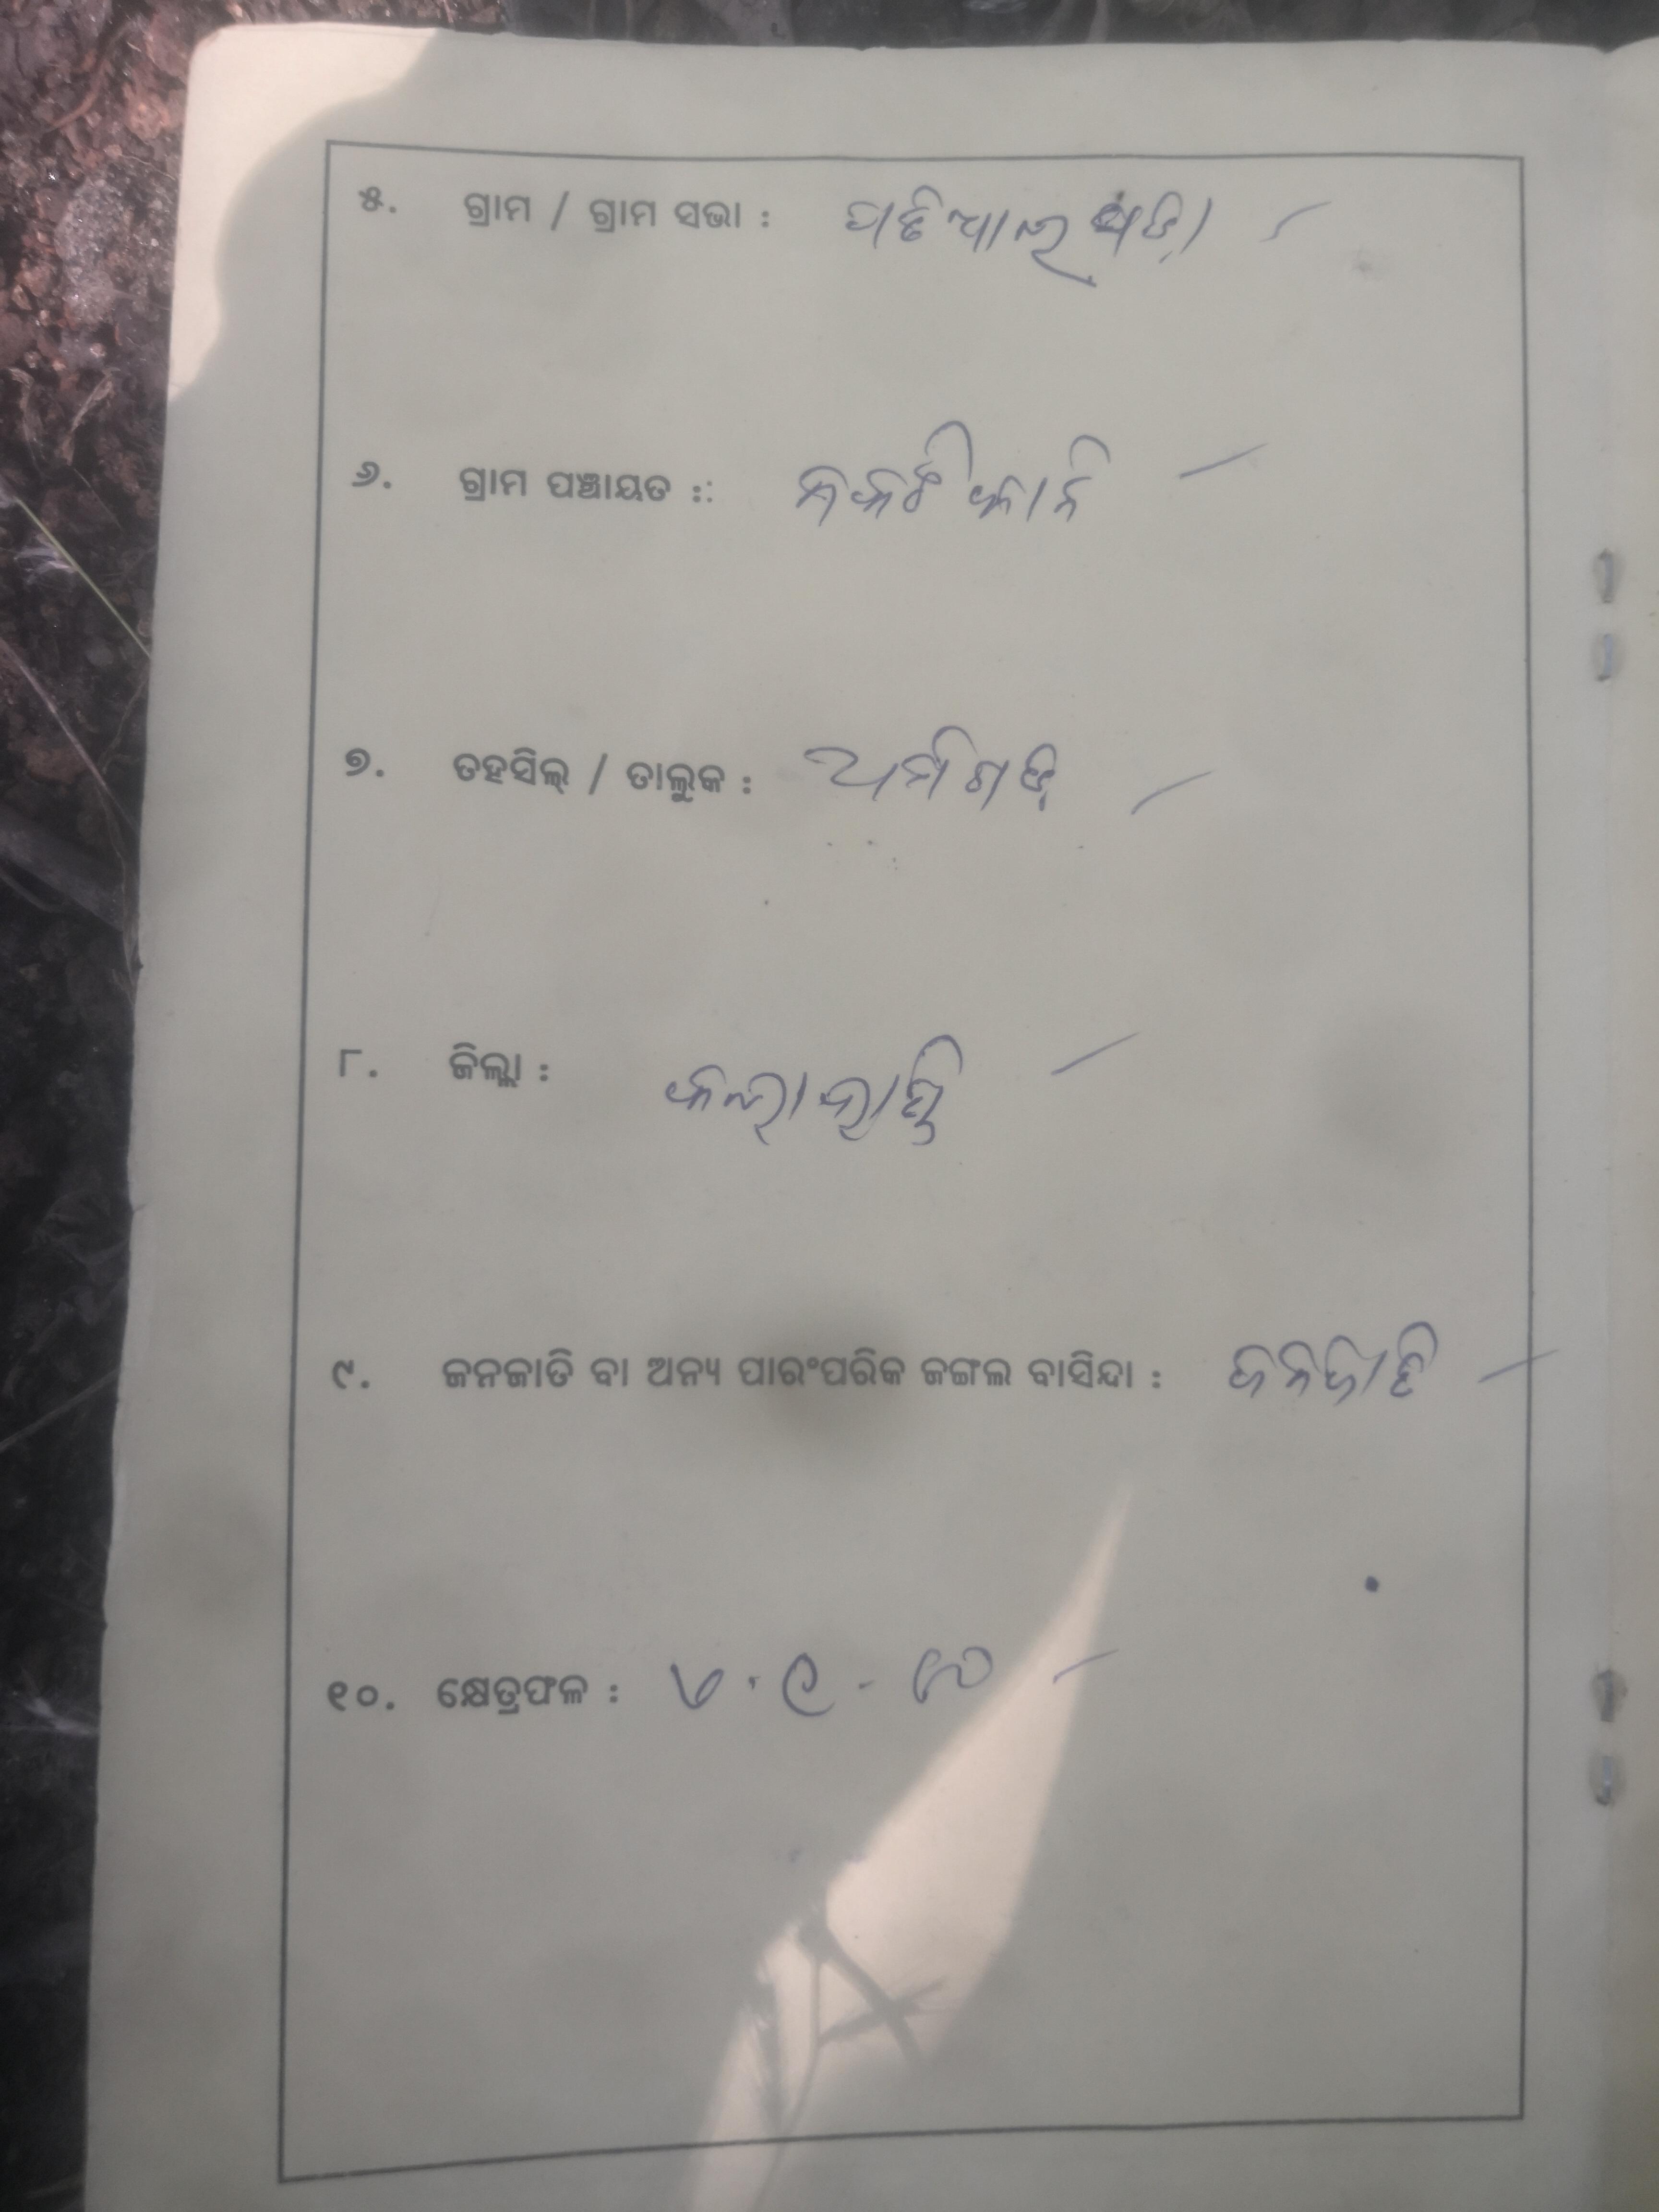 ୫. ଗ୍ରାମ / ଗ୍ରାମ ସଭା :
୬. ଗ୍ରାମ ପଞ୍ଚାୟତ :: ନକଟିକାନି
୭. ତହସିଲ୍ / ତାଲୁକ :
୮. ଜିଲ୍ଲା : କଲାହାଣ୍ଡି
୯. ଜନଜାତି ବା ଅନ୍ୟ ପାରଂପରିକ ଜଙ୍ଗଲ ବାସିନ୍ଦା : ଜନଜାତି
୧୦. କ୍ଷେତ୍ରଫଳ :